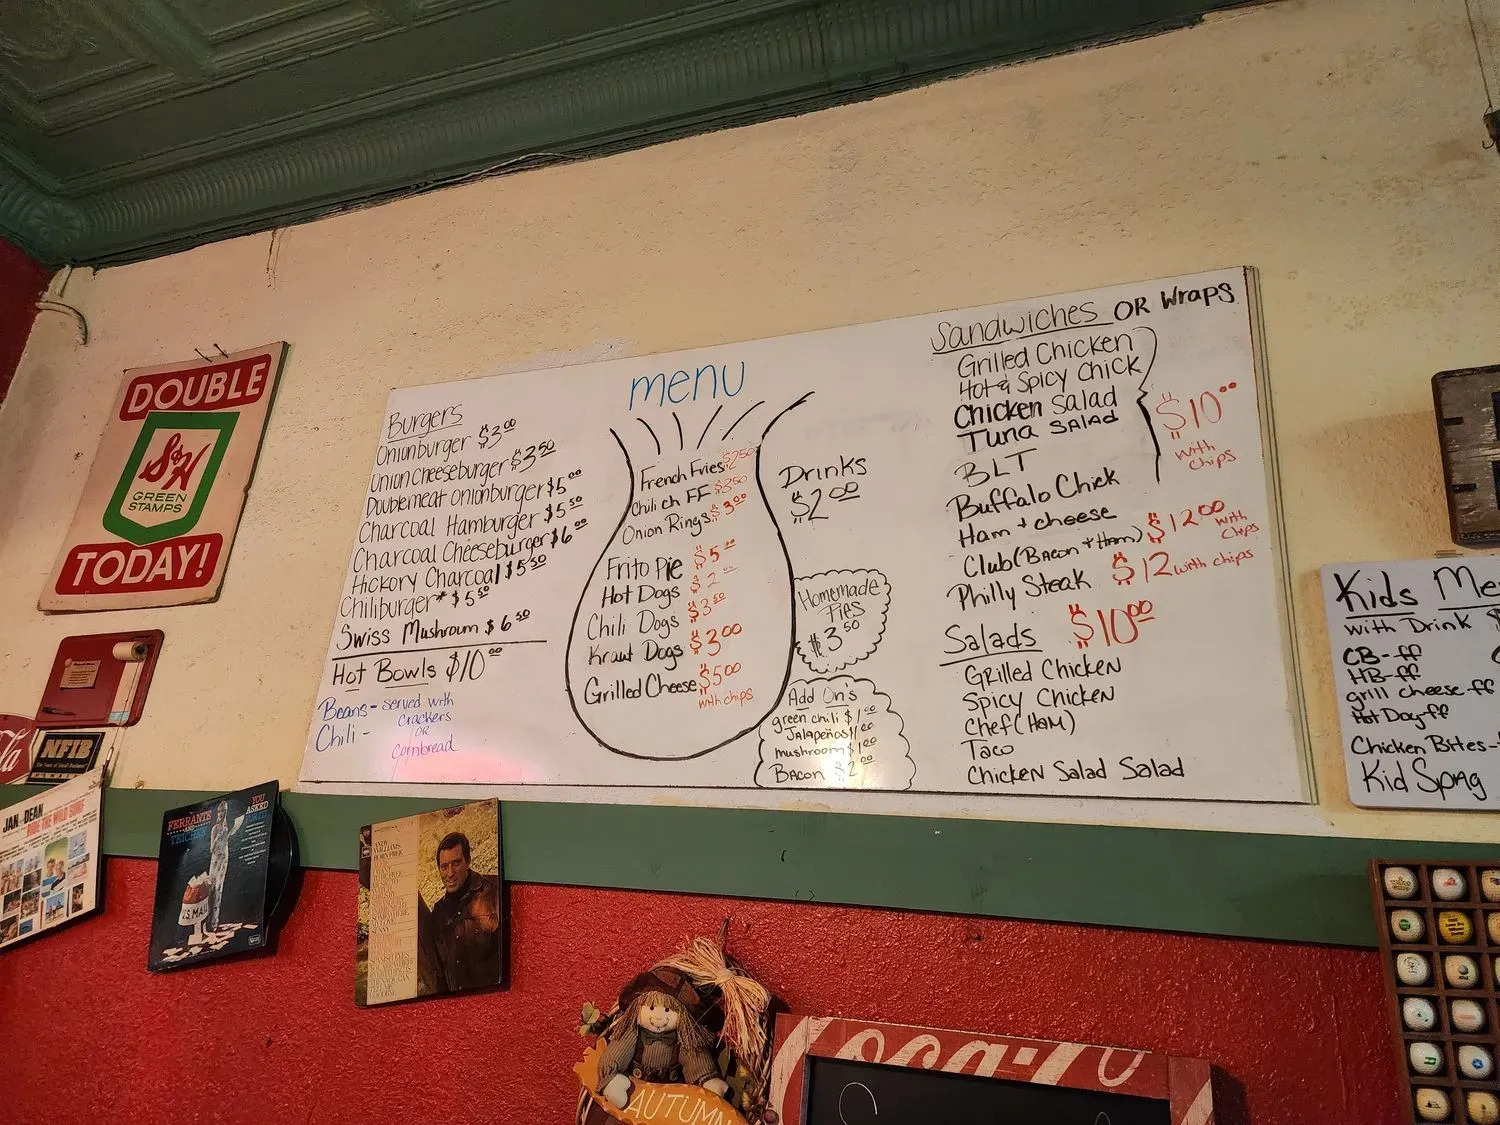 DOUBLE
S&H
GREEN
STAMPS
TODAY!
NFIB
JAN & DEAN
RIDE THE WILD SURF
FERRANTE
AND
TEICHER
YOU
ASKED
U.S. MAIL
ANDY
WILLIAMS
BORN FREE
menu
Burgers
Onionburger $3.00
Onion cheeseburger $3.50
Doublemeat onionburger $5.00
Charcoal Hamburger $5.50
Charcoal Cheeseburger $6.00
Hickory Charcoal $5.50
Chiliburger* $5.50
Swiss Mushroom $6.50
Hot Bowls $10.00
Beans - served with
Chili - crackers
OR
Cornbread
French Fries $2.50
Chili ch FF $3.50
Onion Rings $3.00
Frito Pie $5.00
Hot Dogs $2.00
Chili Dogs $3.50
Kraut Dogs $3.00
Grilled Cheese $5.00
with chips
Drinks
$2.00
Homemade
Pies
$3.50
Add On's
green chili $1.00
Jalapeños $1.00
mushroom $1.00
Bacon $2.00
Sandwiches OR Wraps
Grilled Chicken
Hot & Spicy Chick
Chicken Salad
Tuna Salad
BLT
Buffalo Chick
Ham + cheese
$10.00
with
chips
Club (Bacon + Ham) $12.00 with chips
Philly Steak $12 with chips
Salads $10.00
Grilled Chicken
Spicy Chicken
Chef (HAM)
Taco
Chicken Salad Salad
Kids Me
with Drink $
CB-ff
HB-ff
grill cheese-ff
Hot Dog-ff
Chicken Bites-
Kid Spag
AUTUMN
Coca-Co